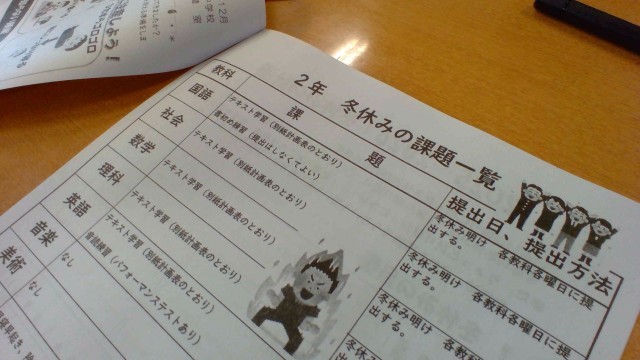 12月
しよう！
2年 冬休みの課題一覧
教科
課題
提出日、提出方法
国語
テキスト学習（別紙計画表のとおり）
書初め練習（提出はしなくてよい）
冬休み明け 各教科各曜日に提
出する。
社会
テキスト学習（別紙計画表のとおり）
冬休み明け 各教科各曜日に提
出する。
数学
テキスト学習（別紙計画表のとおり）
冬休み明け 各教科各曜日に提
出する。
理科
テキスト学習（別紙計画表のとおり）
英語
テキスト学習（別紙計画表のとおり）
音読練習（パフォーマンステストあり）
音楽
なし
美術
なし